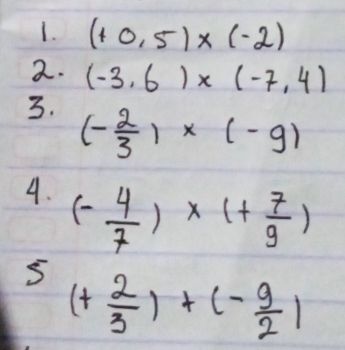 1. (+0,5) × (-2)
2. (-3,6) × (-7,4)
3. (-2/3) × (-9)
4. (-4/7) × (+7/9)
5 (+2/3) + (-9/2)